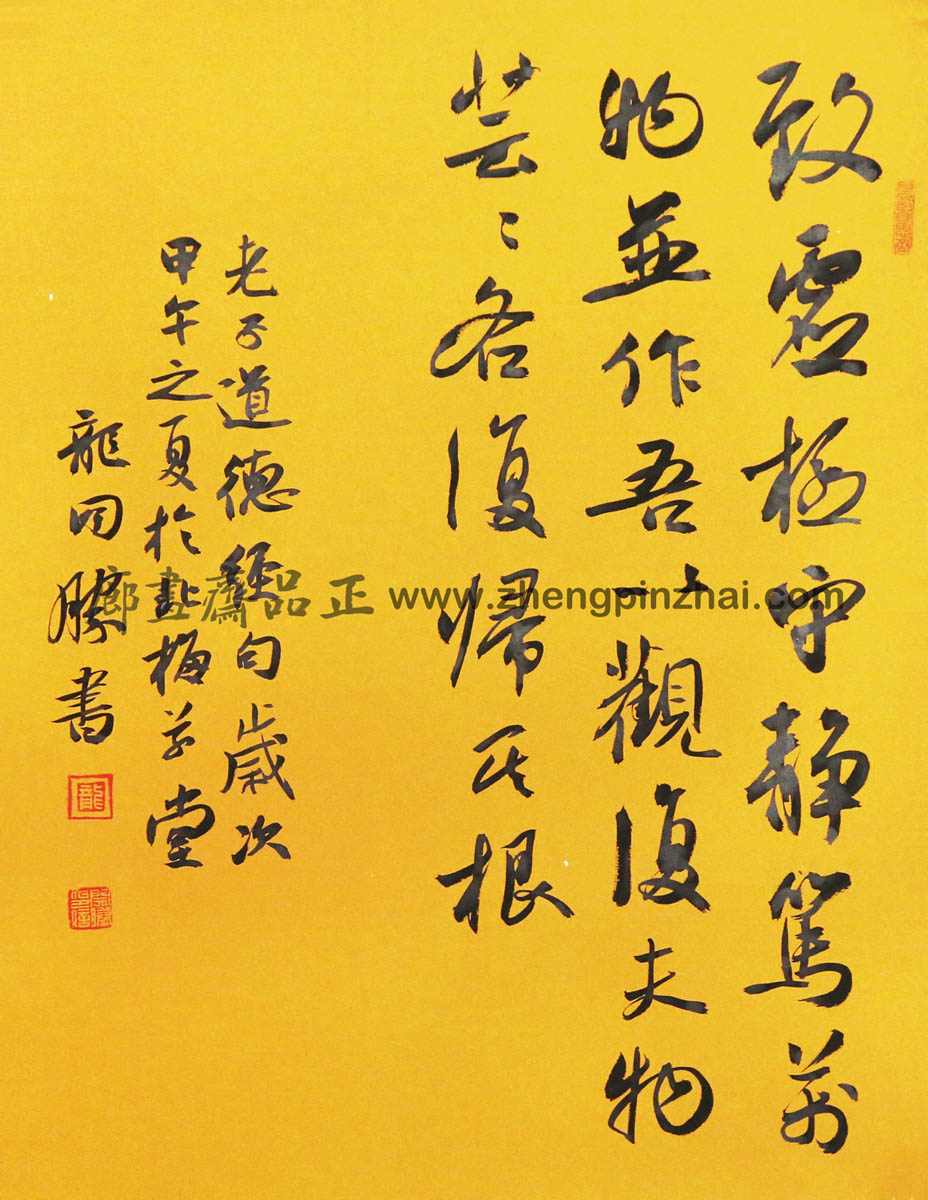 致虛極守靜篤萬
物並作吾以觀復夫物
芸〻各復歸其根
老子道德經句歲次
甲午之夏於梅草堂
龍開勝書
龍
開勝印信
正品齋畫廊
www.zhengpinzhai.com